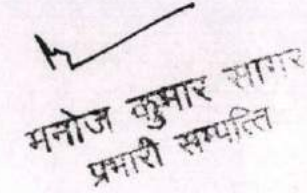 मनोज कुमार सागर
प्रभारी सम्पत्ति